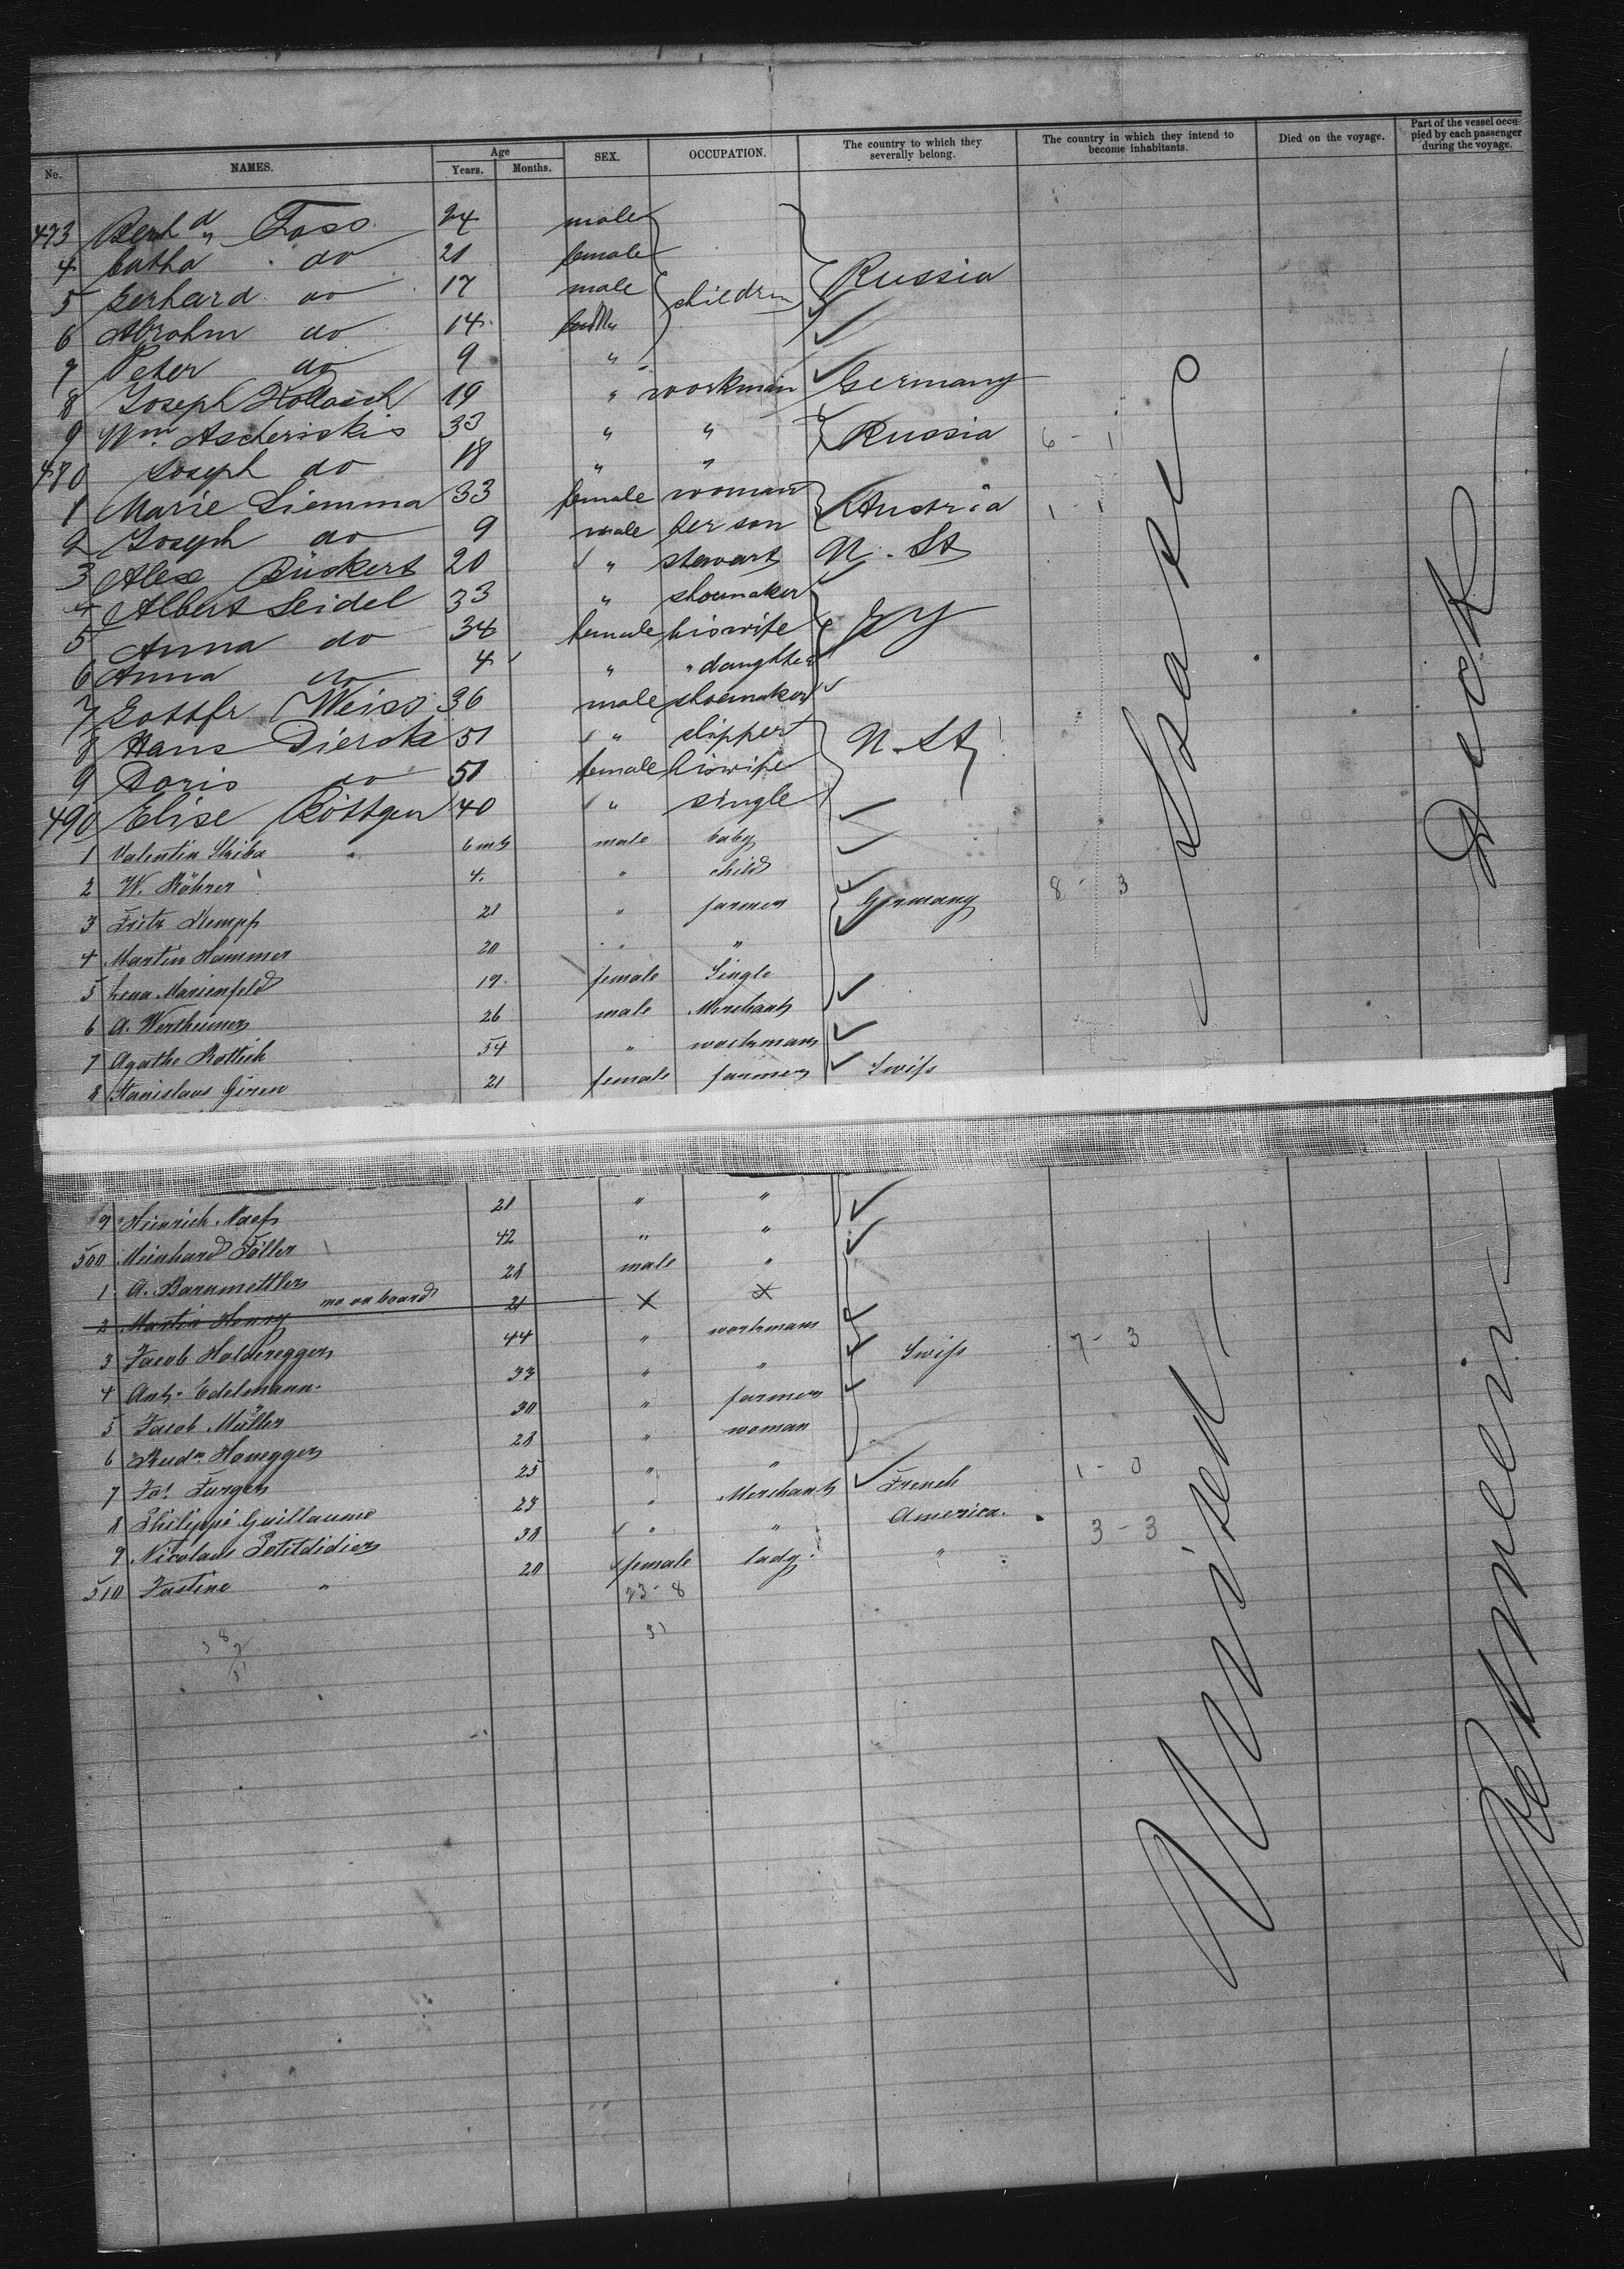 No. NAMES. Age Years. Months. SEX. OCCUPATION. The country to which they severally belong. The country in which they intend to become inhabitants. Died on the voyage. Part of the vessel occupied by each passenger during the voyage.
473 24 male
4 Catha do 21 female
5 Gerhard do 17 male children Russia
6 Abrahm do 14
7 Peter do 9 "
8 Joseph Kollasch 19 " workman Germany
9 Wm. Ascheriskis 33 " " Russia 6 - 1
480 Joseph do 18 " "
1 Marie Siemma 33 female woman Austria 1 - 1
2 Joseph do 9 male her son
3 Alex Rückert 20 " stewart U. St
4 Albert Seidel 33 " shoemaker
5 Anna do 34 female his wife Gy
6 Anna do 4 " " daughter
7 Gottfr Weiss 36 male shoemaker
8 Hans Dierck 51 " U. St
9 Doris do 51 female his wife
490 Elise Röttgen 40 " single
1 Valentin Skiba 6 mts male baby
2 W. Röhrer 4 " child
3 Fritz Kempf 21 " farmer Germany 8 - 3
4 Martin Hammer 20 " "
5 Lena Marienfeld 17 female Single
6 A. Wertheimer 26 male Merchant
7 Agathe Rottich 54 " workman
8 Stanislaus Giren 21 female farmer Swiss
9 Heinrich Naef 21 " "
500 Meinhard Föller 42 " "
1 A. Barumettler 28 male "
2 Martin Henry no on board 21 X X
3 Jacob Holderegger 44 " workman
4 Ant. Edelmann 33 " " Swiss 7 - 3
5 Jacob Müller 30 " farmer
6 Rud. Honegger 28 " woman
7 Jos. Furger 25 " "
8 Philippe Guillaume 23 " Merchant French 1 - 0
9 Nicolaus Petitdidier 38 " " America. 3 - 3
510 Justine " 20 female lady "
23 - 8
31
States
United
Deck